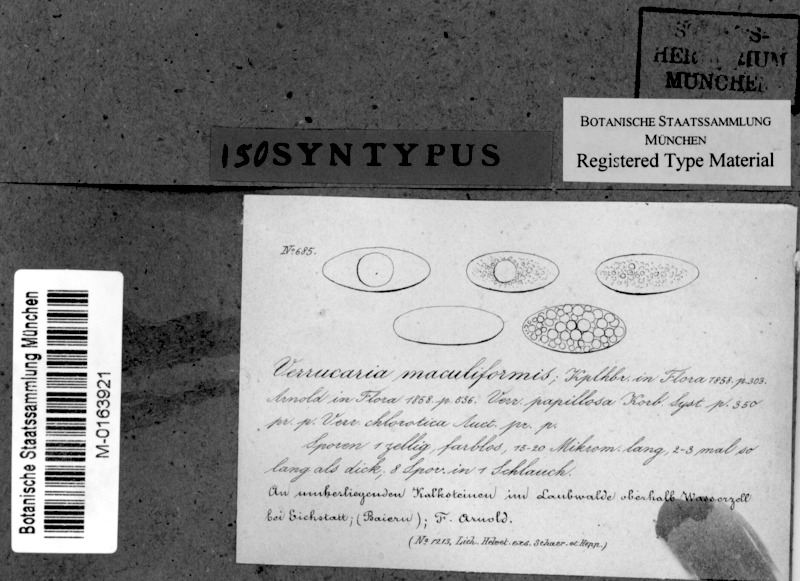 HERBARIUM
MÜNCHEN
BOTANISCHE STAATSSAMMLUNG
MÜNCHEN
Registered Type Material
150 SYNTYPUS
Botanische Staatssammlung München
M-0163921
No 685.
Verrucaria maculiformis; Kplhbr. in Flora 1858. p. 303.
Arnold in Flora 1858. p. 536. Verr. papillosa Korb. Syst. p. 350
pr. p. Verr. chlorotica Auct. pr. p.
Sporen 1 zellig, farblos, 15-20 Mikrom. lang, 2-3 mal so
lang als dick, 8 Spor. in 1 Schlauch.
An umherliegenden Kalksteinen im Laubwalde oberhalb Wasserzell
bei Eichstatt; (Baiern); F. Arnold.
(No 1213, Lich. Helvet. exs. Schaer. et Hepp.)